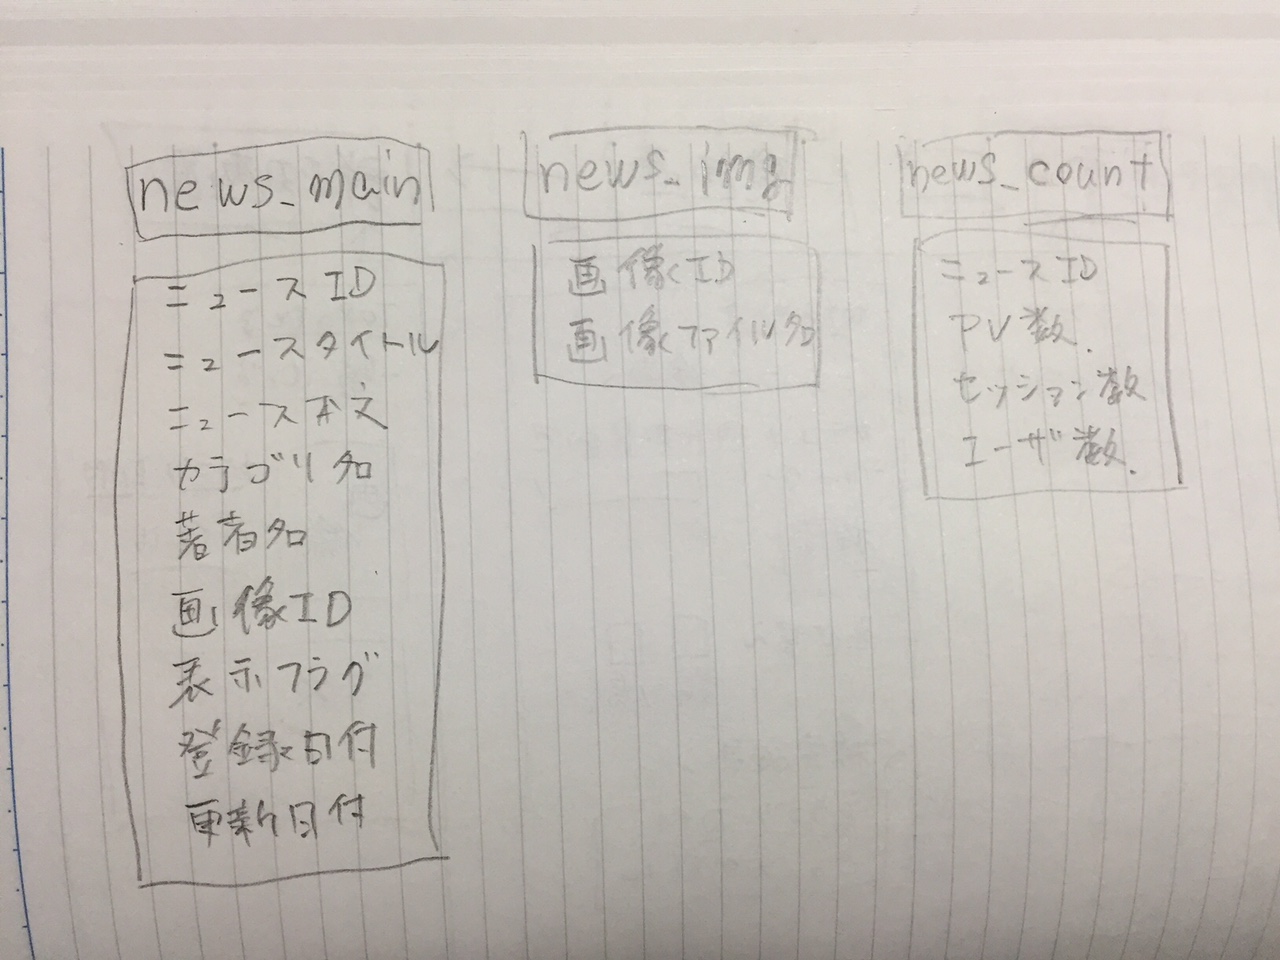 news_main
ニュースID
ニュースタイトル
ニュース本文
カテゴリ名
著者名
画像ID
表示フラグ
登録日付
更新日付
news_img
画像ID
画像ファイル名
news_count
ニュースID
PV数
セッション数
ユーザ数